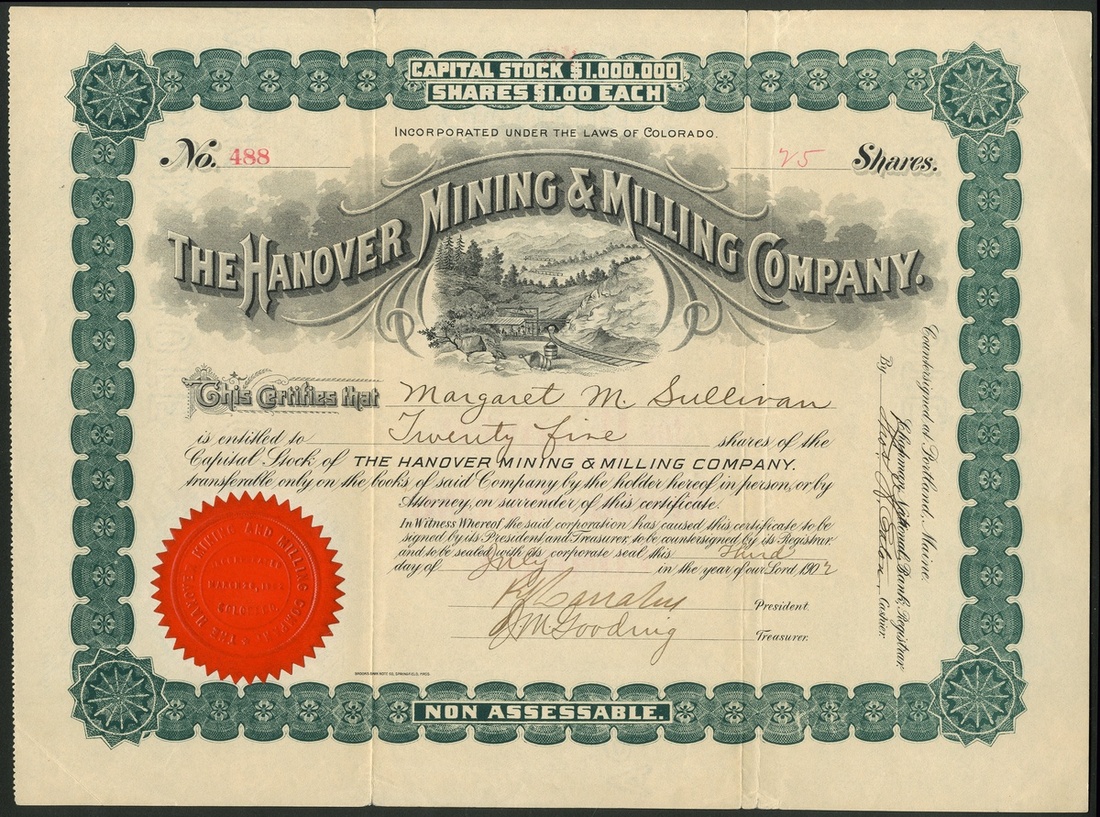 CAPITAL STOCK $1,000,000
SHARES $1.00 EACH
INCORPORATED UNDER THE LAWS OF COLORADO.
No. 488 25 Shares.
THE HANOVER MINING & MILLING COMPANY.
This Certifies that Margaret M. Sullivan
is entitled to Twenty five shares of the
Capital Stock of THE HANOVER MINING & MILLING COMPANY.
transferable only on the books of said Company by the holder hereof in person, or by
Attorney, on surrender of this certificate.
In Witness Whereof the said corporation has caused this certificate to be
signed by its President and Treasurer, to be countersigned by its Registrar
and to be sealed with its corporate seal this Third
day of July in the year of our Lord 1902
President.
J M Gooding Treasurer.
Countersigned at Portland, Maine.
National Bank, Registrar
By Cashier.
THE HANOVER MINING AND MILLING COMPANY
INCORPORATED
COLORADO
NON ASSESSABLE.